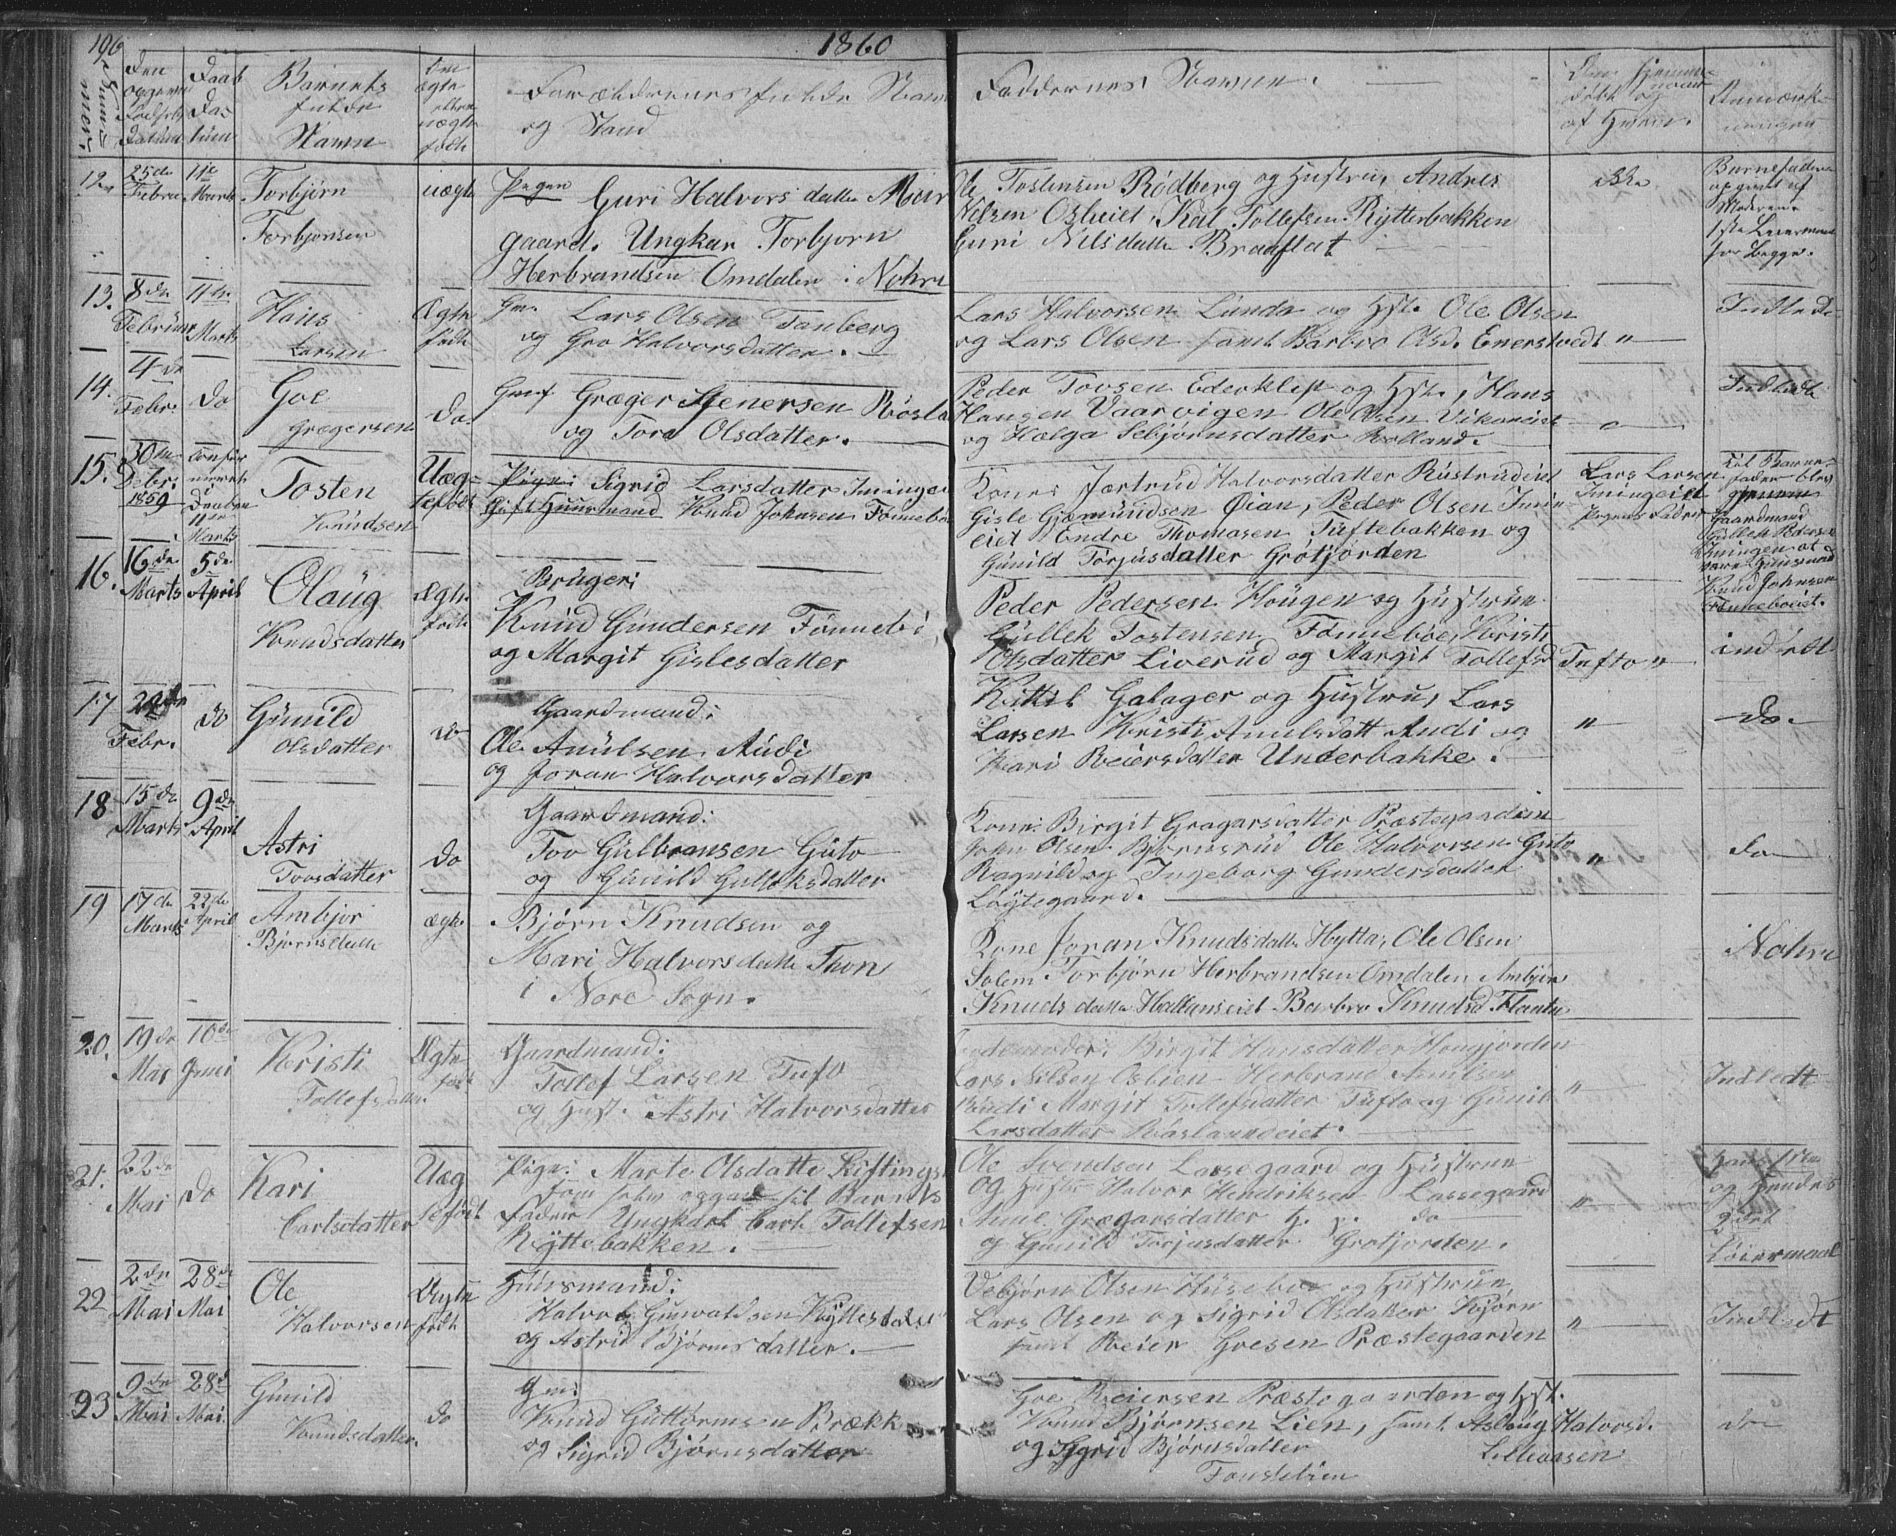 196
1860
Num-
mer.
Den
opgivne
Fødsels
Datum
Daab
Da-
tum
Barnets
fulde
Navn
Om
ægte
eller
uægte
født
Forældrenes fulde Navn
og Stand
Faddernes Navne.
Anmærk-
ninger
12.
25de
Febru
11te
Marts
Torbjörn
Torbjörnsen
uægte
Pigen Guri Halvorsdatter Meir
gaard. Ungkar Torbjorn
Herbrandsen Omdalen i Nohre
Ole Tostensen Rödberg og Hustru, Andres
Nilsen Osteiet. Kal Tollefsen Rytterbakken
Guri Nilsdatter Braaflat
ikke
Barnefaderen
opgivet af
Moderen
1ste Leiermaal
for Begge.
13.
8de
Februar
11te
Marts
Hans
Larsen
Ægte
født
Gm. Lars Olsen Tanberg
og Gro Halvorsdatter.
Lars Halvorsen Lunda og Hst. Ole Olsen
og Lars Olsen samt Barbro Olsd. Enerstvedt "
Indledt
14.
4de
Febr.
do
Goe
Grægersen
do.
Gmd Græger Stenersen Rösla
og Tore Olsdatter.
Peder Tovsen Ederklep og Hst., Hans
Hansen Vaarvigen Ole Olsen
og Helga Sebjörnsdatter Rolland.
Indledt
15.
30te
Debr.
1859
11te
Marts
Tosten
Knudsen
Uæg-
tefødt
Pige: Sigrid Larsdatter Imingei
Gift Huusmand Knud Johnsen Fönnebö
Kone: Jærtrud Halvorsdatter Rustrudeiet
Gisle Gjæmundsen Øian, Peder Olsen Imin
eiet Endre Thomasen Tuftebakken og
Gunild Torjusdatter Grotjorden
Lars Larsen
Imingeiet
Pigens Fader
Til Barne-
fader blev
Gaardmand
Gullek Pedersen
Imingen at
være Huusmand
Knud Johnsen
Fönneböeiet.
16.
16de
Marts
5de
April
Olaug
Knudsdatter
Ægte
født
Bruger:
Knud Gundersen Fönnebö
og Margit Gislesdatter
Peder Pedersen Hougen og Hustrue
Gullek Tostensen Fönneböe, Kristi
Olsdatter Liverud og Margit Tollefsd Tufto "
indledt
17
22de
Febr.
do
Gunild
Olsdatter
do
Gaardmand:
Ole Anulsen Rudi
og Joran Halvorsdatter
Kittil Galager og Hustru, Lars
Larsen Kristi Anulsdatt Rudi og
Kari Reiersdatter Underbakke.
"
do.
18
15de
Marts
9de
April
Astri
Tovsdatter
do
Gaardmand:
Tov Gulbransen Guto
og Gunild Gulleksdatter
Kone: Birgit Gragarsdatter Præstegaarden
John Olsen Björnsrud Ole Halvorsen Guto
Ragnild og Ingeborg Gundersdatter
Løytegaard.
"
do
19
17de
Marts
22de
April
Ambjør
Bjørnsdatter
ægte
Bjørn Knudsen og
Mari Halvorsdatter Thon
i Nore Sogn.
Kone Joran Knudsdatter Hytta, Ole Olsen
Solem Torbjörn Herbrandsen Omdalen Ambjør
Knudsdatter Hallanseiet Barbro Knudsd
Nohre
20.
19de
Mai
10de
Juni
Kristi
Tollefsdatter
Ægte
født
Gaardmand:
Tollef Larsen Tufo
og Hust. Astri Halvorsdatter
Godemoder: Birgit Hansdatter Hougjorden
Lars Nilsen Osbien Herbrand Anulsen
Rudi Margit Tollefsdatter Tufto og Gunil
Larsdatter Röslandeiet.
"
Indledt
21.
22de
Mai
do
Kari
Carlsdatter
Uæg
tefødt
Pige: Marte Olsdatte Kiftings
som som opgav til Barnets
fader Ungkarl Carl Tollefsen
Ryttebakken.
Ole Svendsen Lassegaard og Hustrue
og Hustru Halvor Hendriksen Lassegaard
Anne Gregarsdatter do
og Gunild Torjusdatter Grotjorden.
"
Hans 1ste
og hendes
2det
Leiermaal
22
2den
Mai
28de
Mai
Ole
Halvorsen
Ægte
født
Huusmand:
Halvor Gunvaldsen Kyllesdalen
og Astrid Bjørnsdatter.
Vebjørn Olsen Huseboe og Hustrue
Lars Olsen og Sigrid Olsdatter Kjörn
samt Reier Goesen Præstegaarden
"
Indledt
23
9de
Mai
28d
Mai.
Gunild
Knudsdatter.
do
Gm:
Knud Guttormsen Brækk
og Sigrid Bjørnsdatter
Goe Reiersen Præstegaarden og Hst.
Knud Bjørnsen Lien, samt Aslaug Halvorsd.
og Sigrid Bjørnsdatter Lilleaasen
do